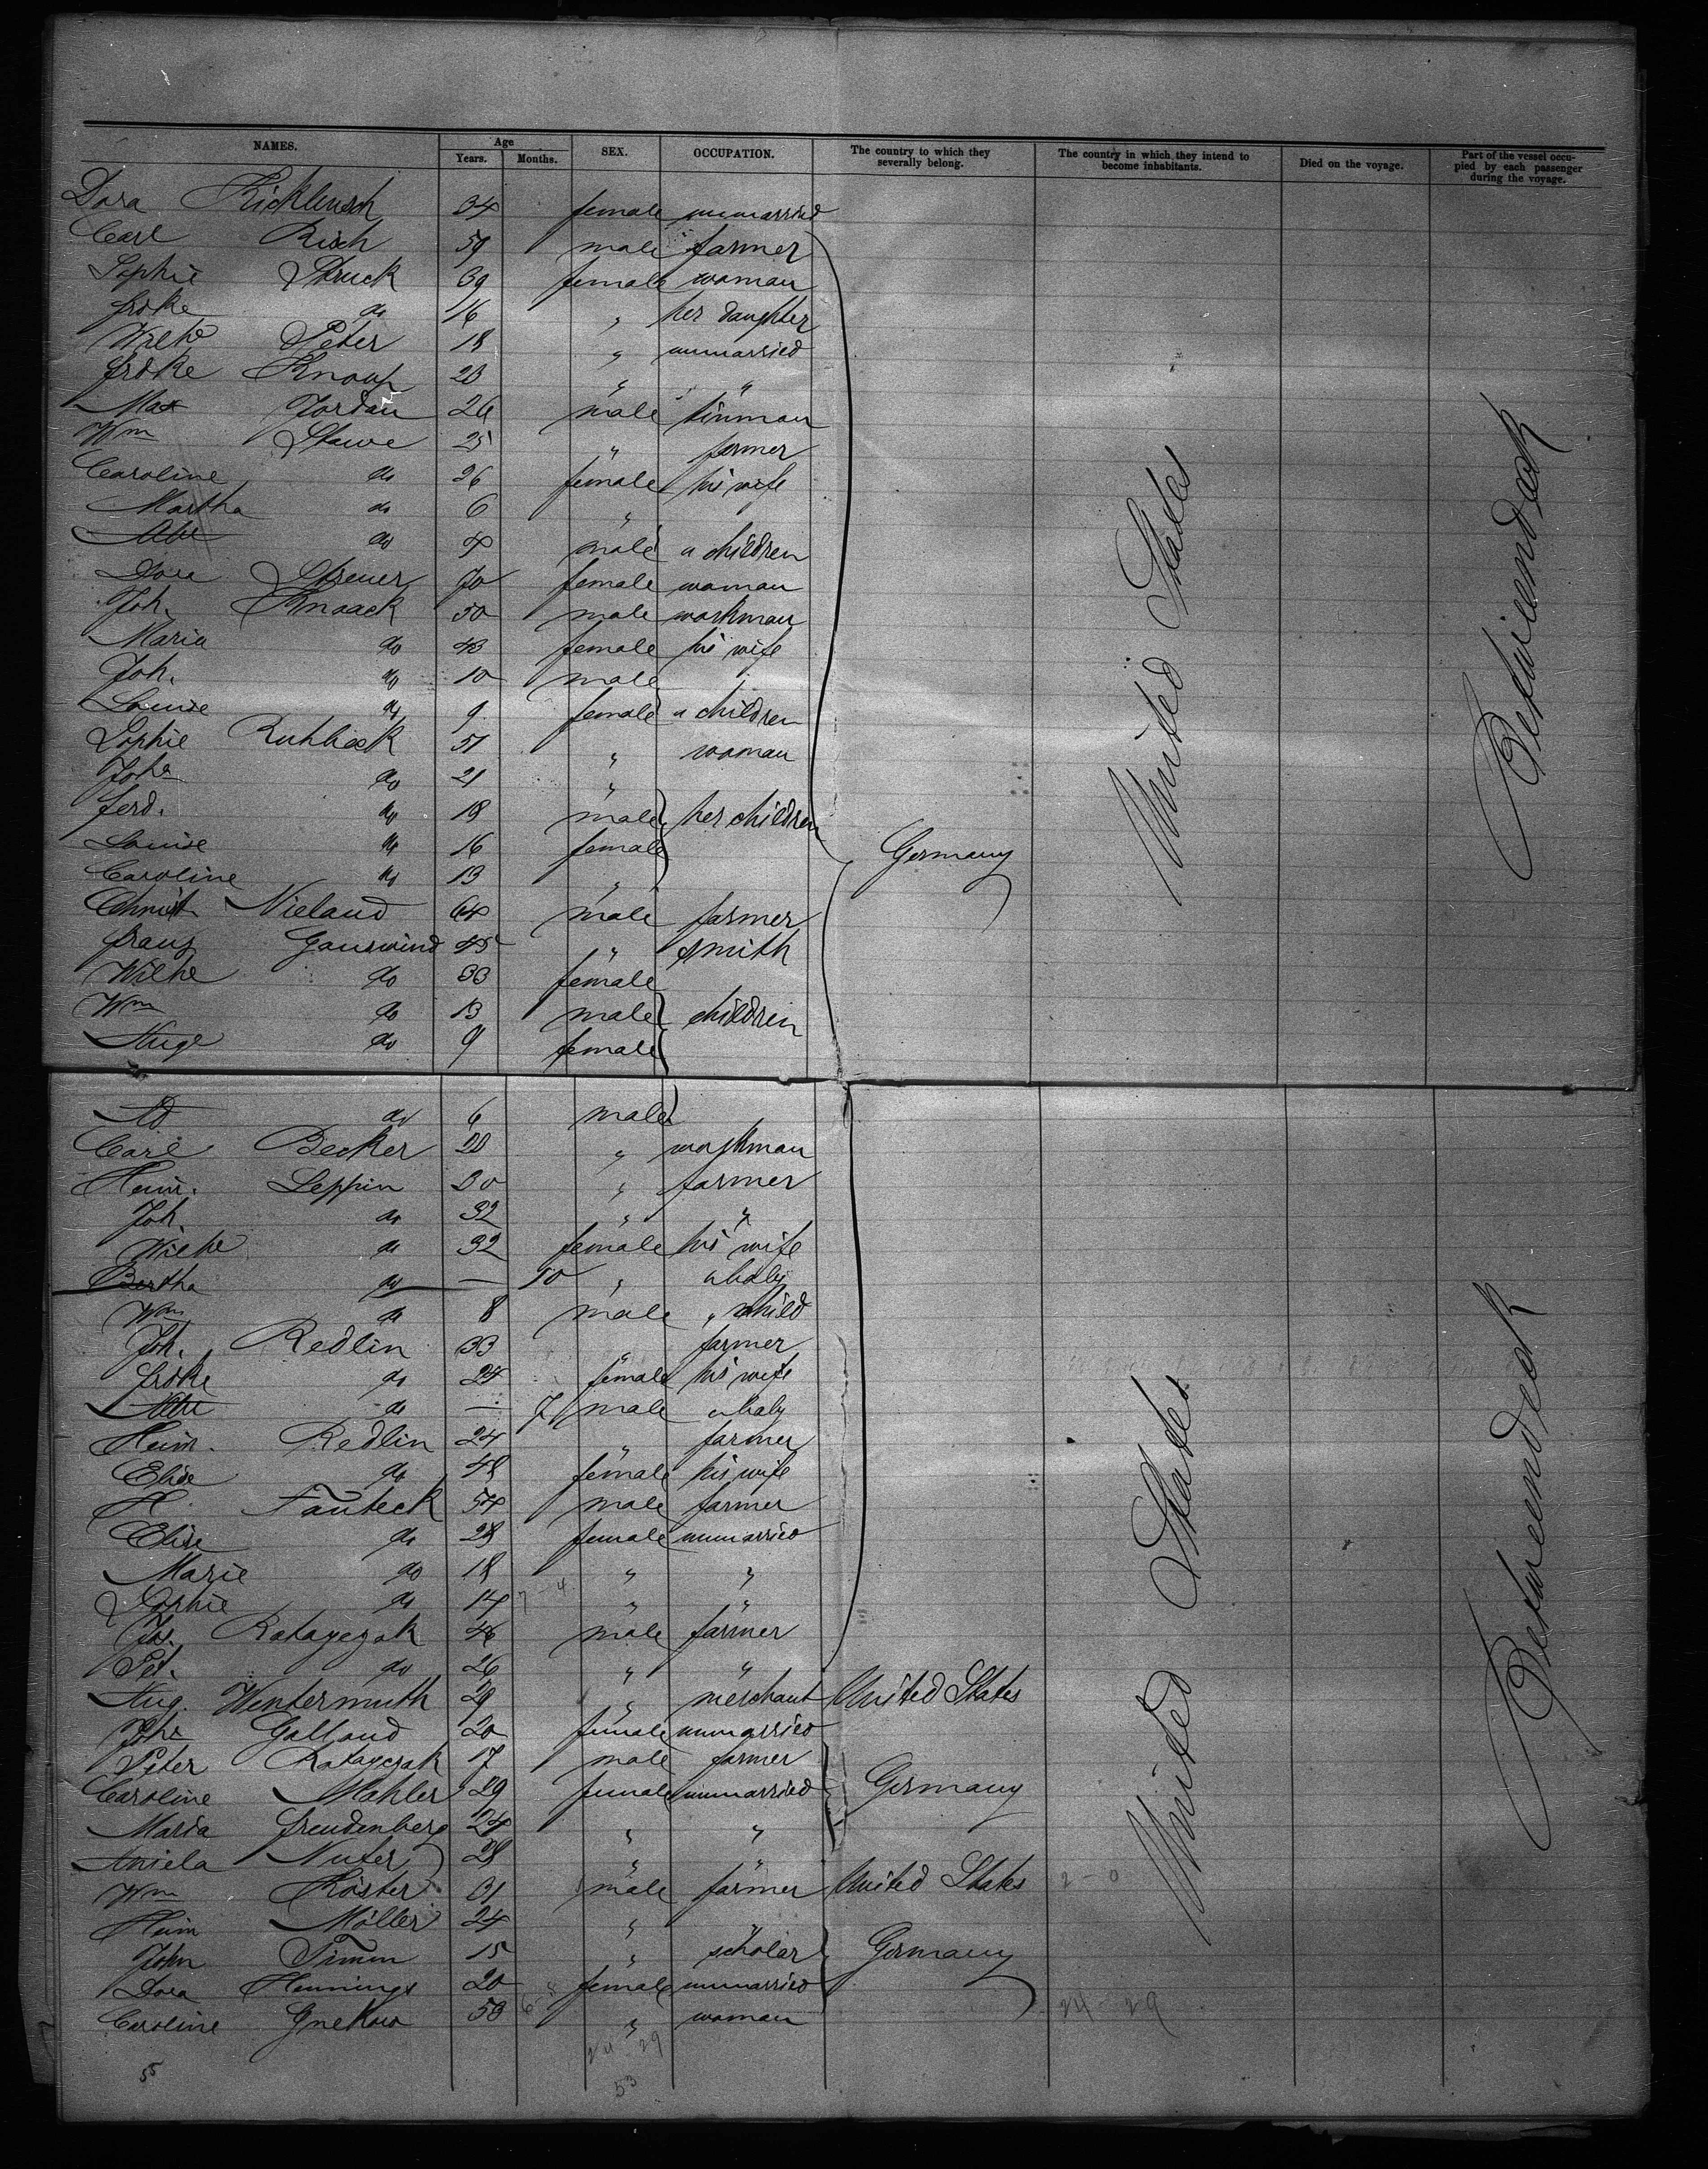 NAMES. Age Years. Months. SEX. OCCUPATION. The country to which they severally belong. The country in which they intend to become inhabitants. Died on the voyage. Part of the vessel occupied by each passenger during the voyage.
Dora 34 female unmarried
Carl Risch 59 male farmer
Sophie Struck 39 female woman
Fredke do 16 " her daughter
Wilhe Peter 18 " unmarried
Fredke Knoup 23 " "
Max Jordan 26 male tinman
Wm Stawe 25 " farmer
Caroline do 26 female his wife
Martha do 6 "
do 4 male " children
Dora Streuer 70 female woman
Joh. Knaack 50 male workman
Maria do 43 female his wife
Joh. do 10 male
Louise do 9 female " children
Sophie 51 " woman
Johe do 21 "
Ferd. do 18 male her children
Louise do 16 female
Caroline do 13 "
Germany
Christ Nieland 64 male farmer
Franz Gauswind 45 " smith
Wilhe do 33 female
Wm do 13 male children
Auge do 9 female
United States
Betweendeck
Ad do 6 male
Carl Becker 20 " workman
Heinr. Leppin 30 " farmer
Joh. do 32 " "
Wilhe do 32 female his wife
Bertha do — 10 " " baby
Wm do 8 male " child
Joh. Redlin 33 " farmer
Fredke do 24 female his wife
do — 7 male " baby
Heinr. Redlin 24 " farmer
Elise do 48 female his wife
H. Fauteck 54 male farmer
Elise do 28 female unmarried
Marie do 18 " "
Sophie do 14 " "
Jos. Ratayczak 46 male farmer
Pet. do 26 " "
Aug. Wintermuth 29 " merchant United States
Johe Galland 20 female unmarried
Peter Ratayczak 17 male farmer
Caroline Mahler 29 female unmarried Germany
Maria Freudenberg 24 " "
Aniela Nuter 28 " "
Wm Köster 31 male farmer United States 2-0
Heinr Möller 24 " "
John Timm 15 " scholar Germany
Dora Hennings 20 female unmarried
Caroline Gnekow 53 " woman
United States
Betweendeck
24 29
24 29
53
55